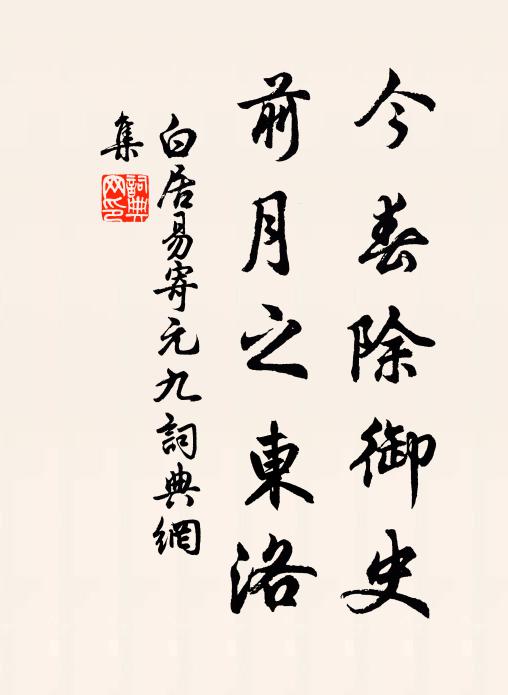 今春除御史
前月之東洛
白居易寄元九詞典網
集
詞典
网印